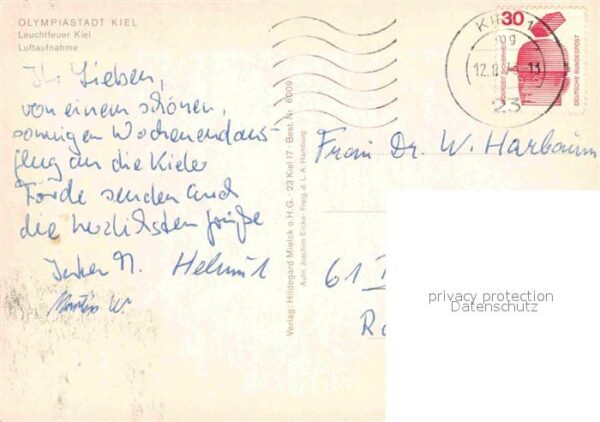 OLYMPIASTADT KIEL
Leuchtfeuer Kiel
Luftaufnahme
Ihr Lieben,
von einem schönen,
sonnigen Wochenendaus-
flug an die Kieler
Förde senden Euch
die herzlichsten Grüße
Helmut
Martin W.
Verlag: Hildegard Mielck o.H.G. · 23 Kiel 17 · Best. Nr. 6009
Aufn. Joachim Eicke · Freig. d. L. A. Hamburg
30
DEUTSCHE BUNDESPOST
23
Frau Dr. W. Harbaum
61
privacy protection
Datenschutz